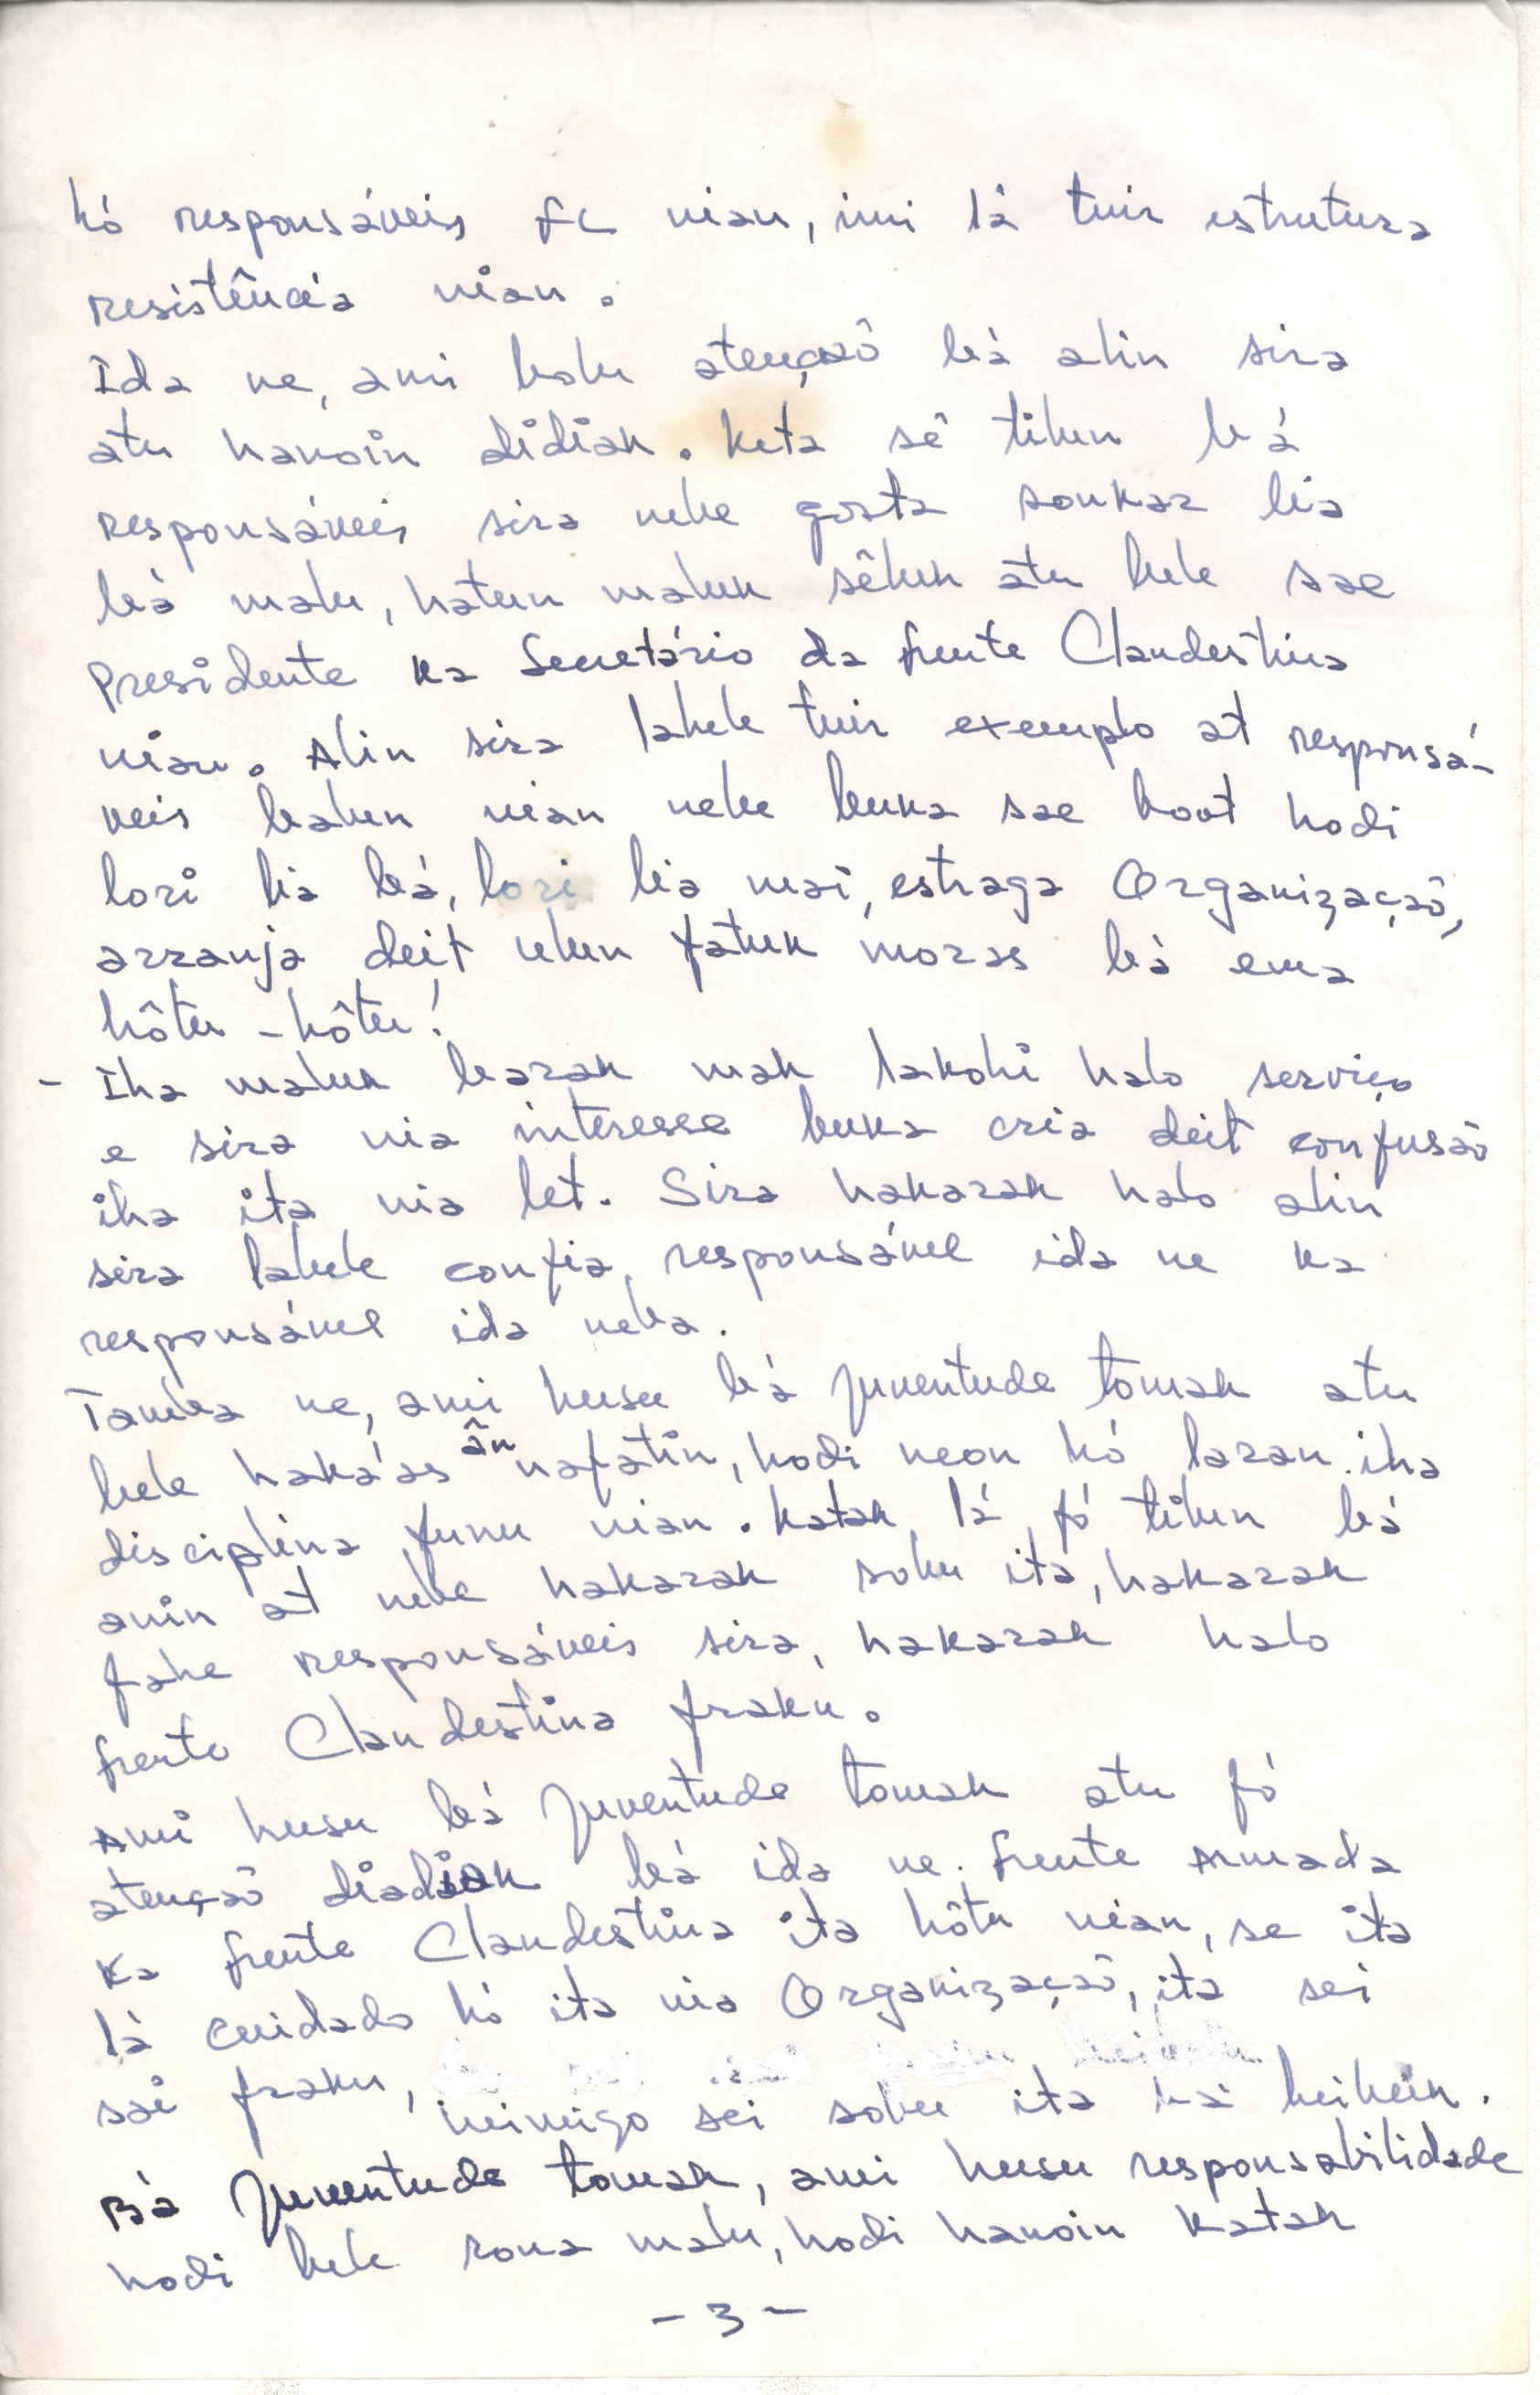 hó responsáveis FC nian, imi lá tuir estrutura
resistência nian.
Ida ne, ami bolu atençaõ bá alin sira
atu hanoin didiak. Keta sé tilun bá
responsáveis sira nebe gosta soukar lia
bá malu, hatun maluk sêluk atu bele sae
Presidente ka Secretário da Frente Clandestina
nian. Alin sira labele tuir exemplo at responsá-
veis balun nian nebe buka sae boot hodi
lori lia bá, lori lia mai, estraga Organizaçaõ,
arranja deit ulun fatuk moras bá ema
hôtu-hôtu!
- Iha maluk barak mak lakohi halo serviço
e sira nia interesse buka cria deit confusaõ
iha ita nia let. Sira hakarak halo alin
sira labele confia, responsável ida ne ka
responsável ida neba.
Tamba ne, ami husu bá Juventude tomak atu
bele haka'as ãn nafatin, hodi neon hó laran iha
disciplina funu nian. Katak lá fó tilun bá
anin at nebe hakarak sobu ita, hakarak
fahe responsáveis sira, hakarak halo
Frente Clandestina fraku.
Ami husu bá Juventude tomak atu fó
atençaõ diadiak bá ida ne. Frente Armada
ka Frente Clandestina ita hôtu nian, se ita
lá cuidado hó ita nia Organizaçaõ, ita sei
sai fraku, inimigo sei sobu ita bá beibeik.
Bá Juventude tomak, ami husu responsabilidade
hodi bele rona malu, hodi hanoin katak
- 3 -